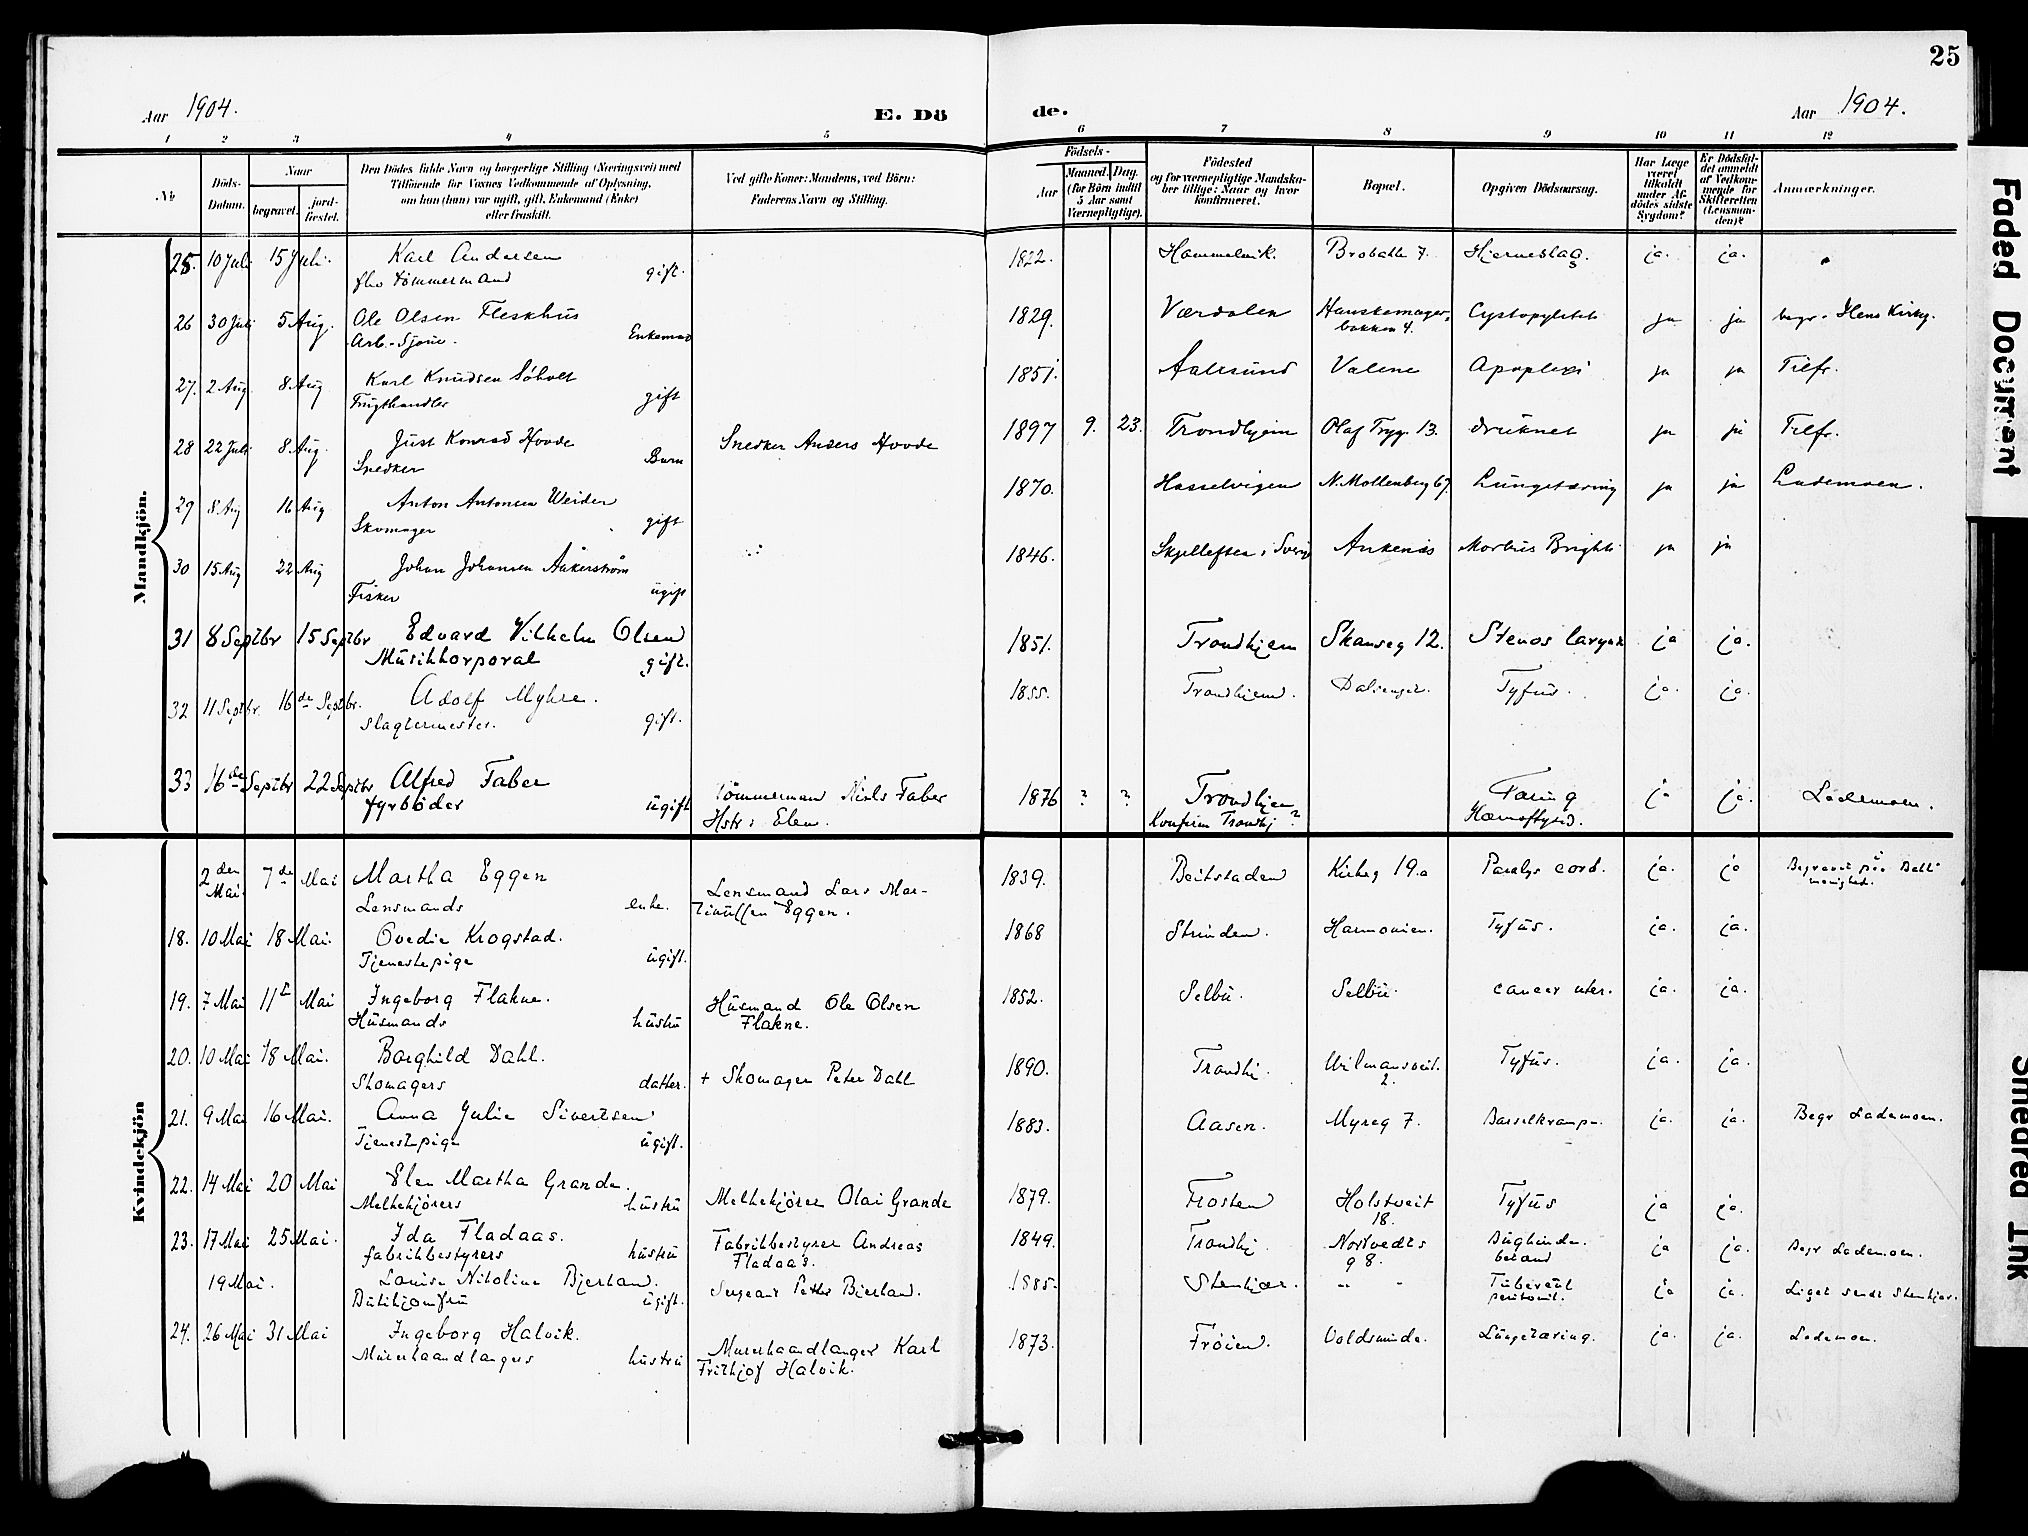 25
Aar 1904.
E. Dö
de.
Aar 1904.
1 2 3 4 5 6 7 8 9 10 11 12
No
Döds-Datum.
Naar
begravet.
jord-fæstet.
Den Dödes fulde Navn og borgerlige Stilling (Næringsvei) med
Tilföiende for Voxnes Vedkommende af Oplysning,
om han (hun) var ugift, gift, Enkemand (Enke)
eller fraskilt.
Ved gifte Koner: Mandens, ved Börn:
Faderens Navn og Stilling.
Födsels-
Aar
Maaned. Dag.
(for Börn indtil
5 Aar samt
Værnepligtige).
Födested
og for værnepligtige Mandska-
ber tillige: Naar og hvor
konfirmeret.
Bopæl.
Opgiven Dödsaarsag.
Har Læge
været
tilkaldt
under Af-
dödes sidste
Sygdom?
Er Dödsfal-
det anmeldt
af Vedkom-
mende for
Skifteretten
(Lensman-
den)?
Anmærkninger.
Mandkjön.
25. 10 Juli 15 Juli. Karl Andersen 1822. Hommelvik. Brobakke 7. Hjerneslag. ja. ja.
fhv Tömmermand gift.
26 30 Juli 5 Aug. Ole Olsen Fleskhus 1829. Værdalen Hanskemager- Cystopyelitis ja ja begr. Hens Kirkg.
Arb.-Sjouer. Enkemand bakken 4.
27. 2 Aug. 8 Aug Karl Knudsen Söholt 1851. Aalesund Valene Apoplexi ja ja Tilfr.
Frugthandler gift
28 22 Juli 8 Aug. Just Konrad Hovde Snedker Anders Hovde 1897 9. 23. Trondhjem Olaf Tryg. 13. druknet ja ja Tilfr.
Snedker Barn
29 8 Aug 16 Aug Anton Antonsen Weider 1870. Hasselvigen N. Mollenberg 67. Lungetæring ja ja Lademoen.
Skomager gift
30 15 Aug 22 Aug Johan Johansen Aakerström 1846. Skjellefteå i Sverig Ankenæs Morbus Brighti ja ja
Fisker ugift
31 8 Septbr 15 Septbr Edvard Vilhelm Olsen 1851. Trondhjem Skanseg 12. Stenos laryn ja ja.
Musikkorporal gift.
32 11 Septbr. 16 de Septbr. Adolf Myhre. 1855. Trondhjem. Dalsenget. Tyfus. ja. ja.
Slagtermester. gift.
33 16 de Septbr 22 Septbr Alfred Faber Tömmermand Niels Faber 1876 ? ? Trondhjem Tæring ja ja. Lademoen.
fyrböder ugift Hstr: Elen. Konfirm Trondhj ?
Kvindekjön
2 den Mai. 7 de Mai Martha Eggen Lensmand Lars Mar- 1839. Beitstaden Kirkeg 19.a Paralys cord. ja. ja Begravet på Betl
Lensmands enke. tinussen Eggen. menighed.
18. 10 Mai 18 Mai. Ovedie Krogstad. 1868 Strinden. Harmonien. Tyfus. ja. ja.
Tjenestepige ugift.
19. 7 Mai 11 Mai Ingeborg Flakne. Husmand Ole Olsen 1852. Selbu. Selbu. cancer uter. ja. ja.
Husmands hustru Flakne.
20. 10 Mai 18 Mai. Borghild Dahl. 1890. Trondhj. Wilmansveit. Tyfus. ja. ja.
Skomagers datter. + Skomager Peter Dahl 2.
21. 9 Mai 16 Mai. Anna Julie Sivertsen 1883. Aasen. Myreg 7. Barselkramp. ja. ja. Begr Lademoen.
Tjenestepige ugift.
22. 14 Mai 20 Mai Elen Martha Grande. Melkekjörer Olai Grande 1879. Frosten Holstveit Tyfus ja ja.
Melkekjörers hustru 18.
23. 17 Mai 25 Mai. Ida Fladaas. Fabrikbestyrer Andreas 1849. Trondhj. Nordvedts Bughinde- ja ja. Begr Lademoen.
fabrikbestyrers hustru Fladaas. g 8. betænd
19 Mai. Louise Nikoline Bjerkan. Sergeant Petter Bjerkan. 1885. Stenkjær. " " Tuberkul ja ja. Liget sendt Stenkjær.
Butikjomfru ugift. peritonit.
24. 26 Mai 31 Mai Ingeborg Halvik. Murerhaandlanger Karl 1873. Fröien. Voldsminde. Lungetæring. ja. ja. Lademoen.
Murerhaandlangers hustru Frithjof Halvik.
Faded Document
Smeared Ink